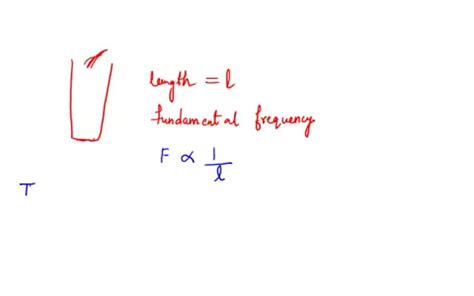 length = l
fundamental frequency
F ∝ 1/l
T